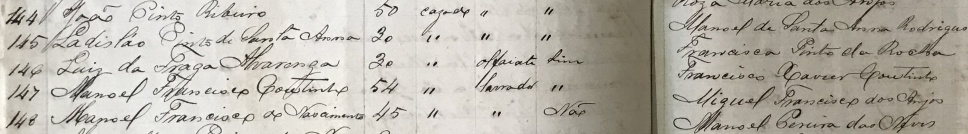 144 João Pinto Ribeiro 50 casado " " Roza Maria dos Anjos
145 Ladislão Pinto de Santa Anna 20 " " " Manoel de Santa Anna Rodrigues
146 Luiz da Fraga Alvarenga 20 " Alfaiate Sim Francisca Pinto da Rocha
147 Manoel Francisco Coutinho 54 " Lavrador " Francisco Xavier Coutinho
148 Manoel Francisco do Nascimento 45 " " Não Miguel Francisco dos Anjos
Manoel Pereira das Neves